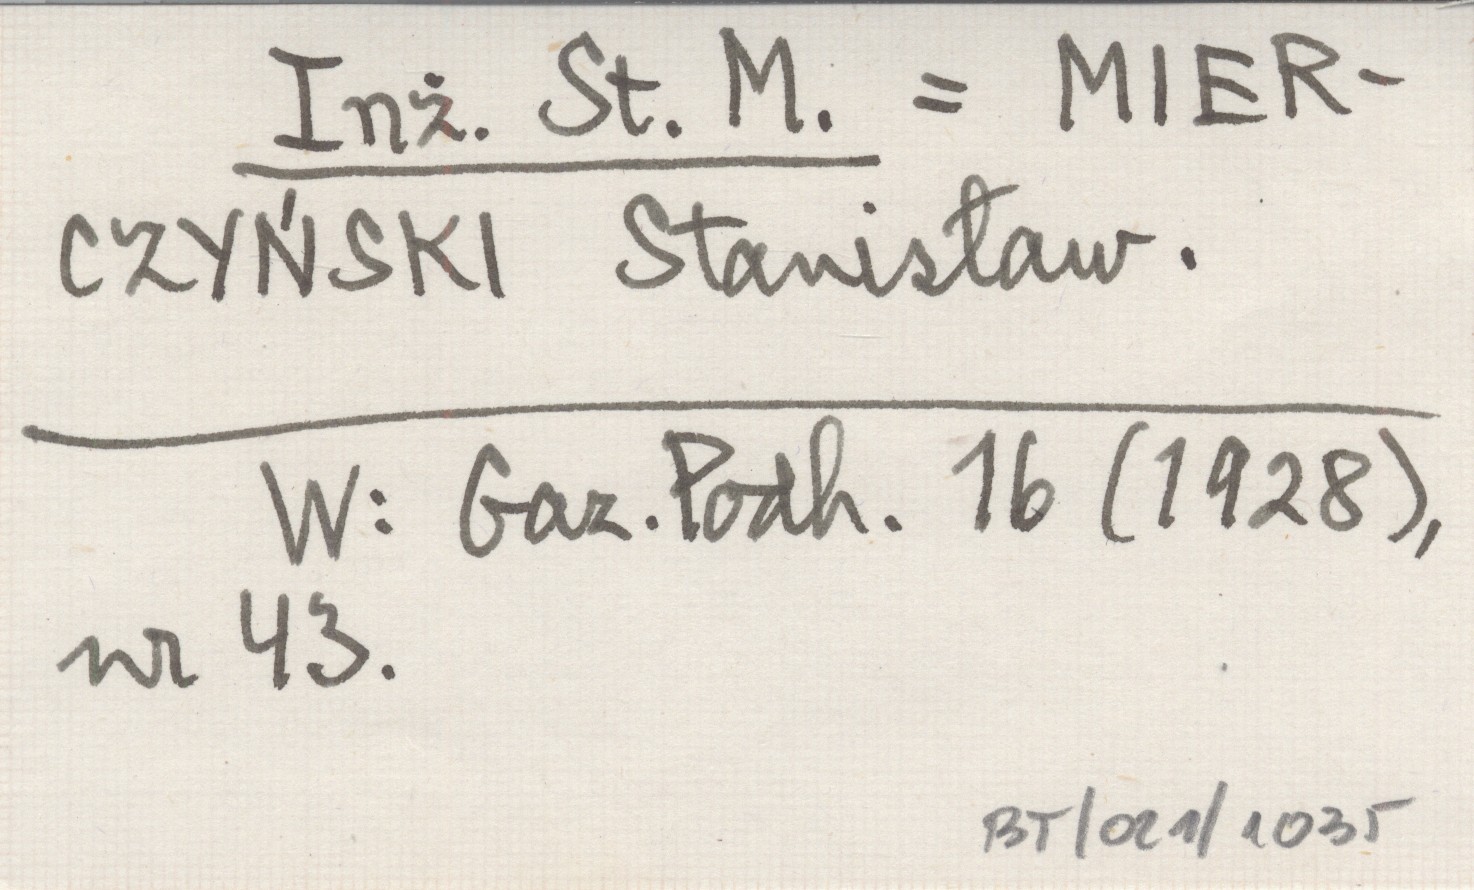 Inż. St. M. = MIER-
CZYŃSKI Stanisław.
W: Gaz. Podh. 16 (1928),
nr 43.
BT/021/1035